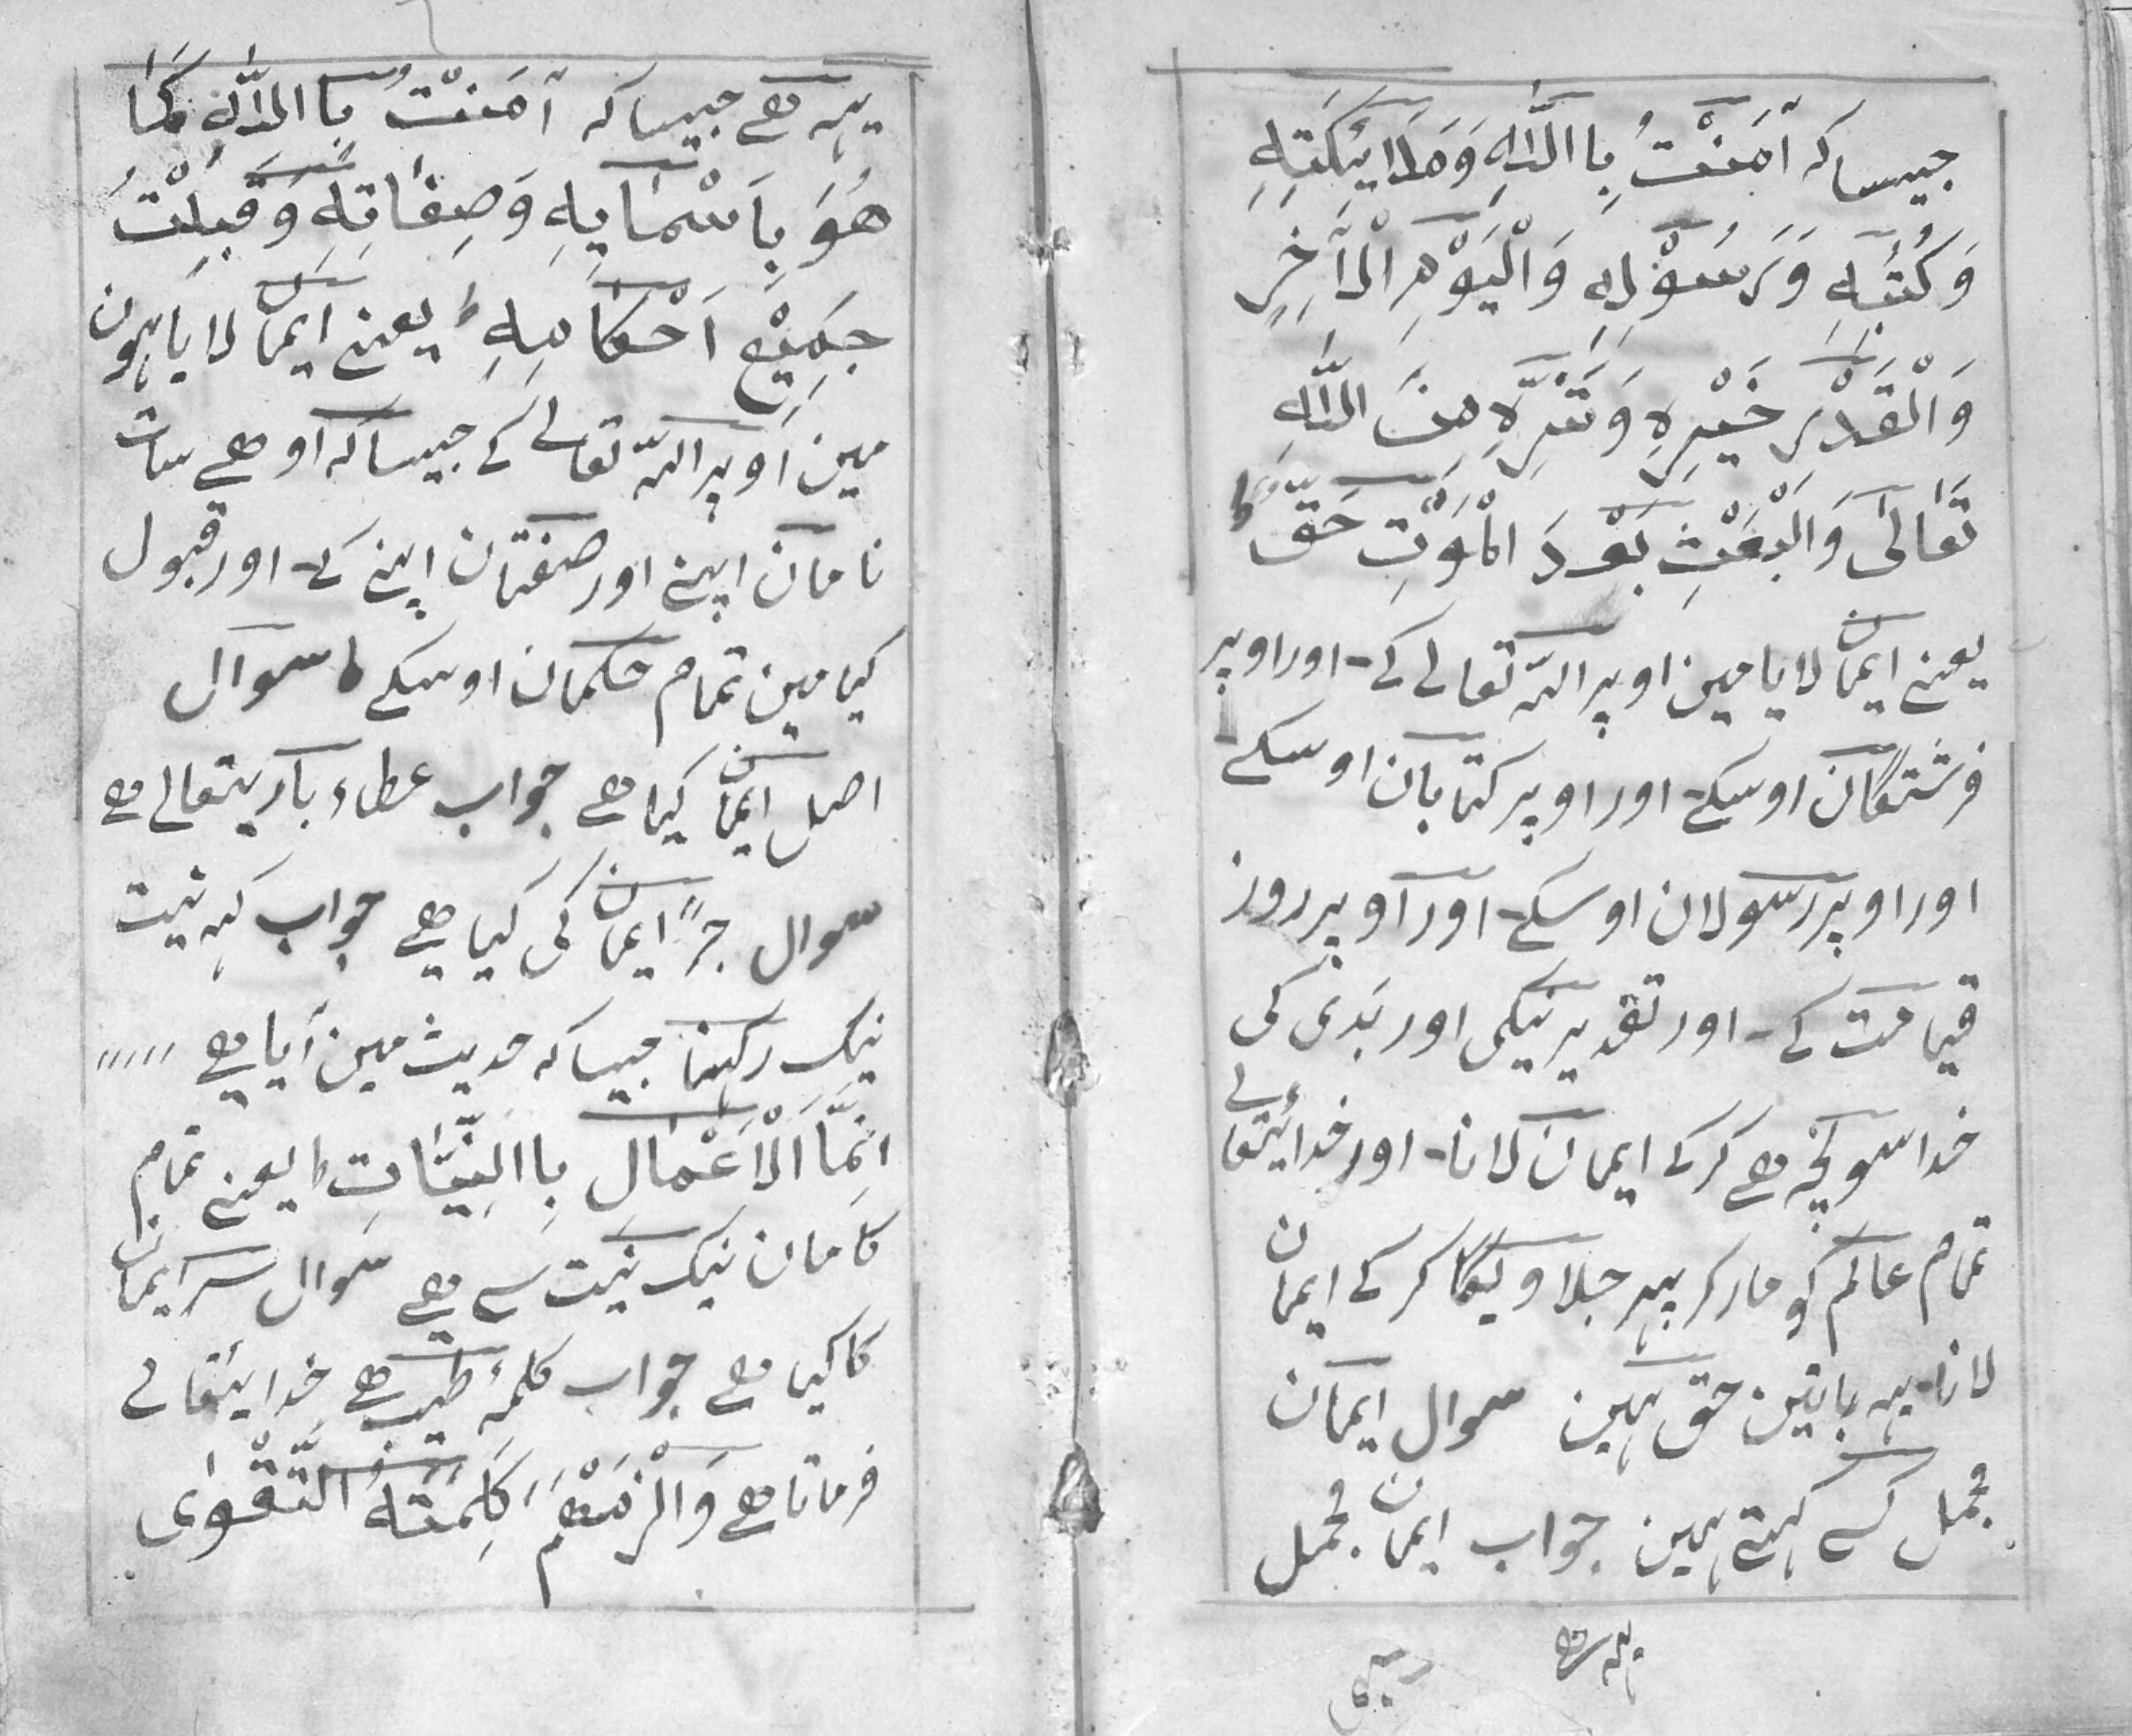 جیسا کہ آمَنْتُ بِااللّٰهِ وَمَلَایٔکَتِهِ
وَکُتُبِهِ وَرَسُوْلِهِ وَالْیَوْمِ الْآخِرِ
وَالْقَدْرِ خَیْرِهِ وَشَرِّهِ مِنَ اللّٰهِ
تَعَالٰی وَالْبَعْثِ بَعْدَ الْمَوْتِ حَقٌّ ط
یعنے ایمان لایا مین اوپر اللّہ تعالے کے۔ اور اوپر
فرشتگان اوسکے۔ اور اوپر کتابان اوسکے۔
اور اوپر رسولان اوسکے۔ اور اوپر روز
قیامت کے۔ اور تقدیر نیکی اور بَدی کی
خدا سونچہ ھے کرکے ایمان لانا۔ اور خدایٔتعالے
تمام عالم کو مار کر پہر جلاویگا کرکے ایمان
لانا۔ یہہ باتین حق ہین سوال ایمان
مجمل کسے کہتے ہین جواب ایمان مجمل
یہہ ھے
یہہ ھے جیسا کہ آمَنْتُ بِاالله کَمَا
هُوَ بِاَسْمَایِهِ وَصِفَاتِهِ وَقَبِلْتُ
جَمِیْعِ اَحْکَامِهِ ط یعنے ایمان لایا ہون
مین اوپر اللّہ تعالے کے جیسا کہ او ھے سات
نامان اپنے اور صفتان اپنے کے۔ اور قبول
کیا مین تمام حکمان اوسکے ط سوال
اصل ایمان کیا ھے جواب عطاء باریتعالے ھے
سوال جڑ ایمان کی کیا ھے جواب کہ نیت
نیک رکہنا جیسا کہ حدیث مین آیا ھے
انِمَّا الْاَعْمَال بِاالنِیَّاتِ ط یعنے تمام
کامان نیک نیَت سے ھے سوال سر ایمان
کا کیا ھے جواب کلمۂ طیب ھے خدایتعالے
فرماتا ھے وَالْزَمَهُمْ کَلِمَتَهُ التَّقْوٰی